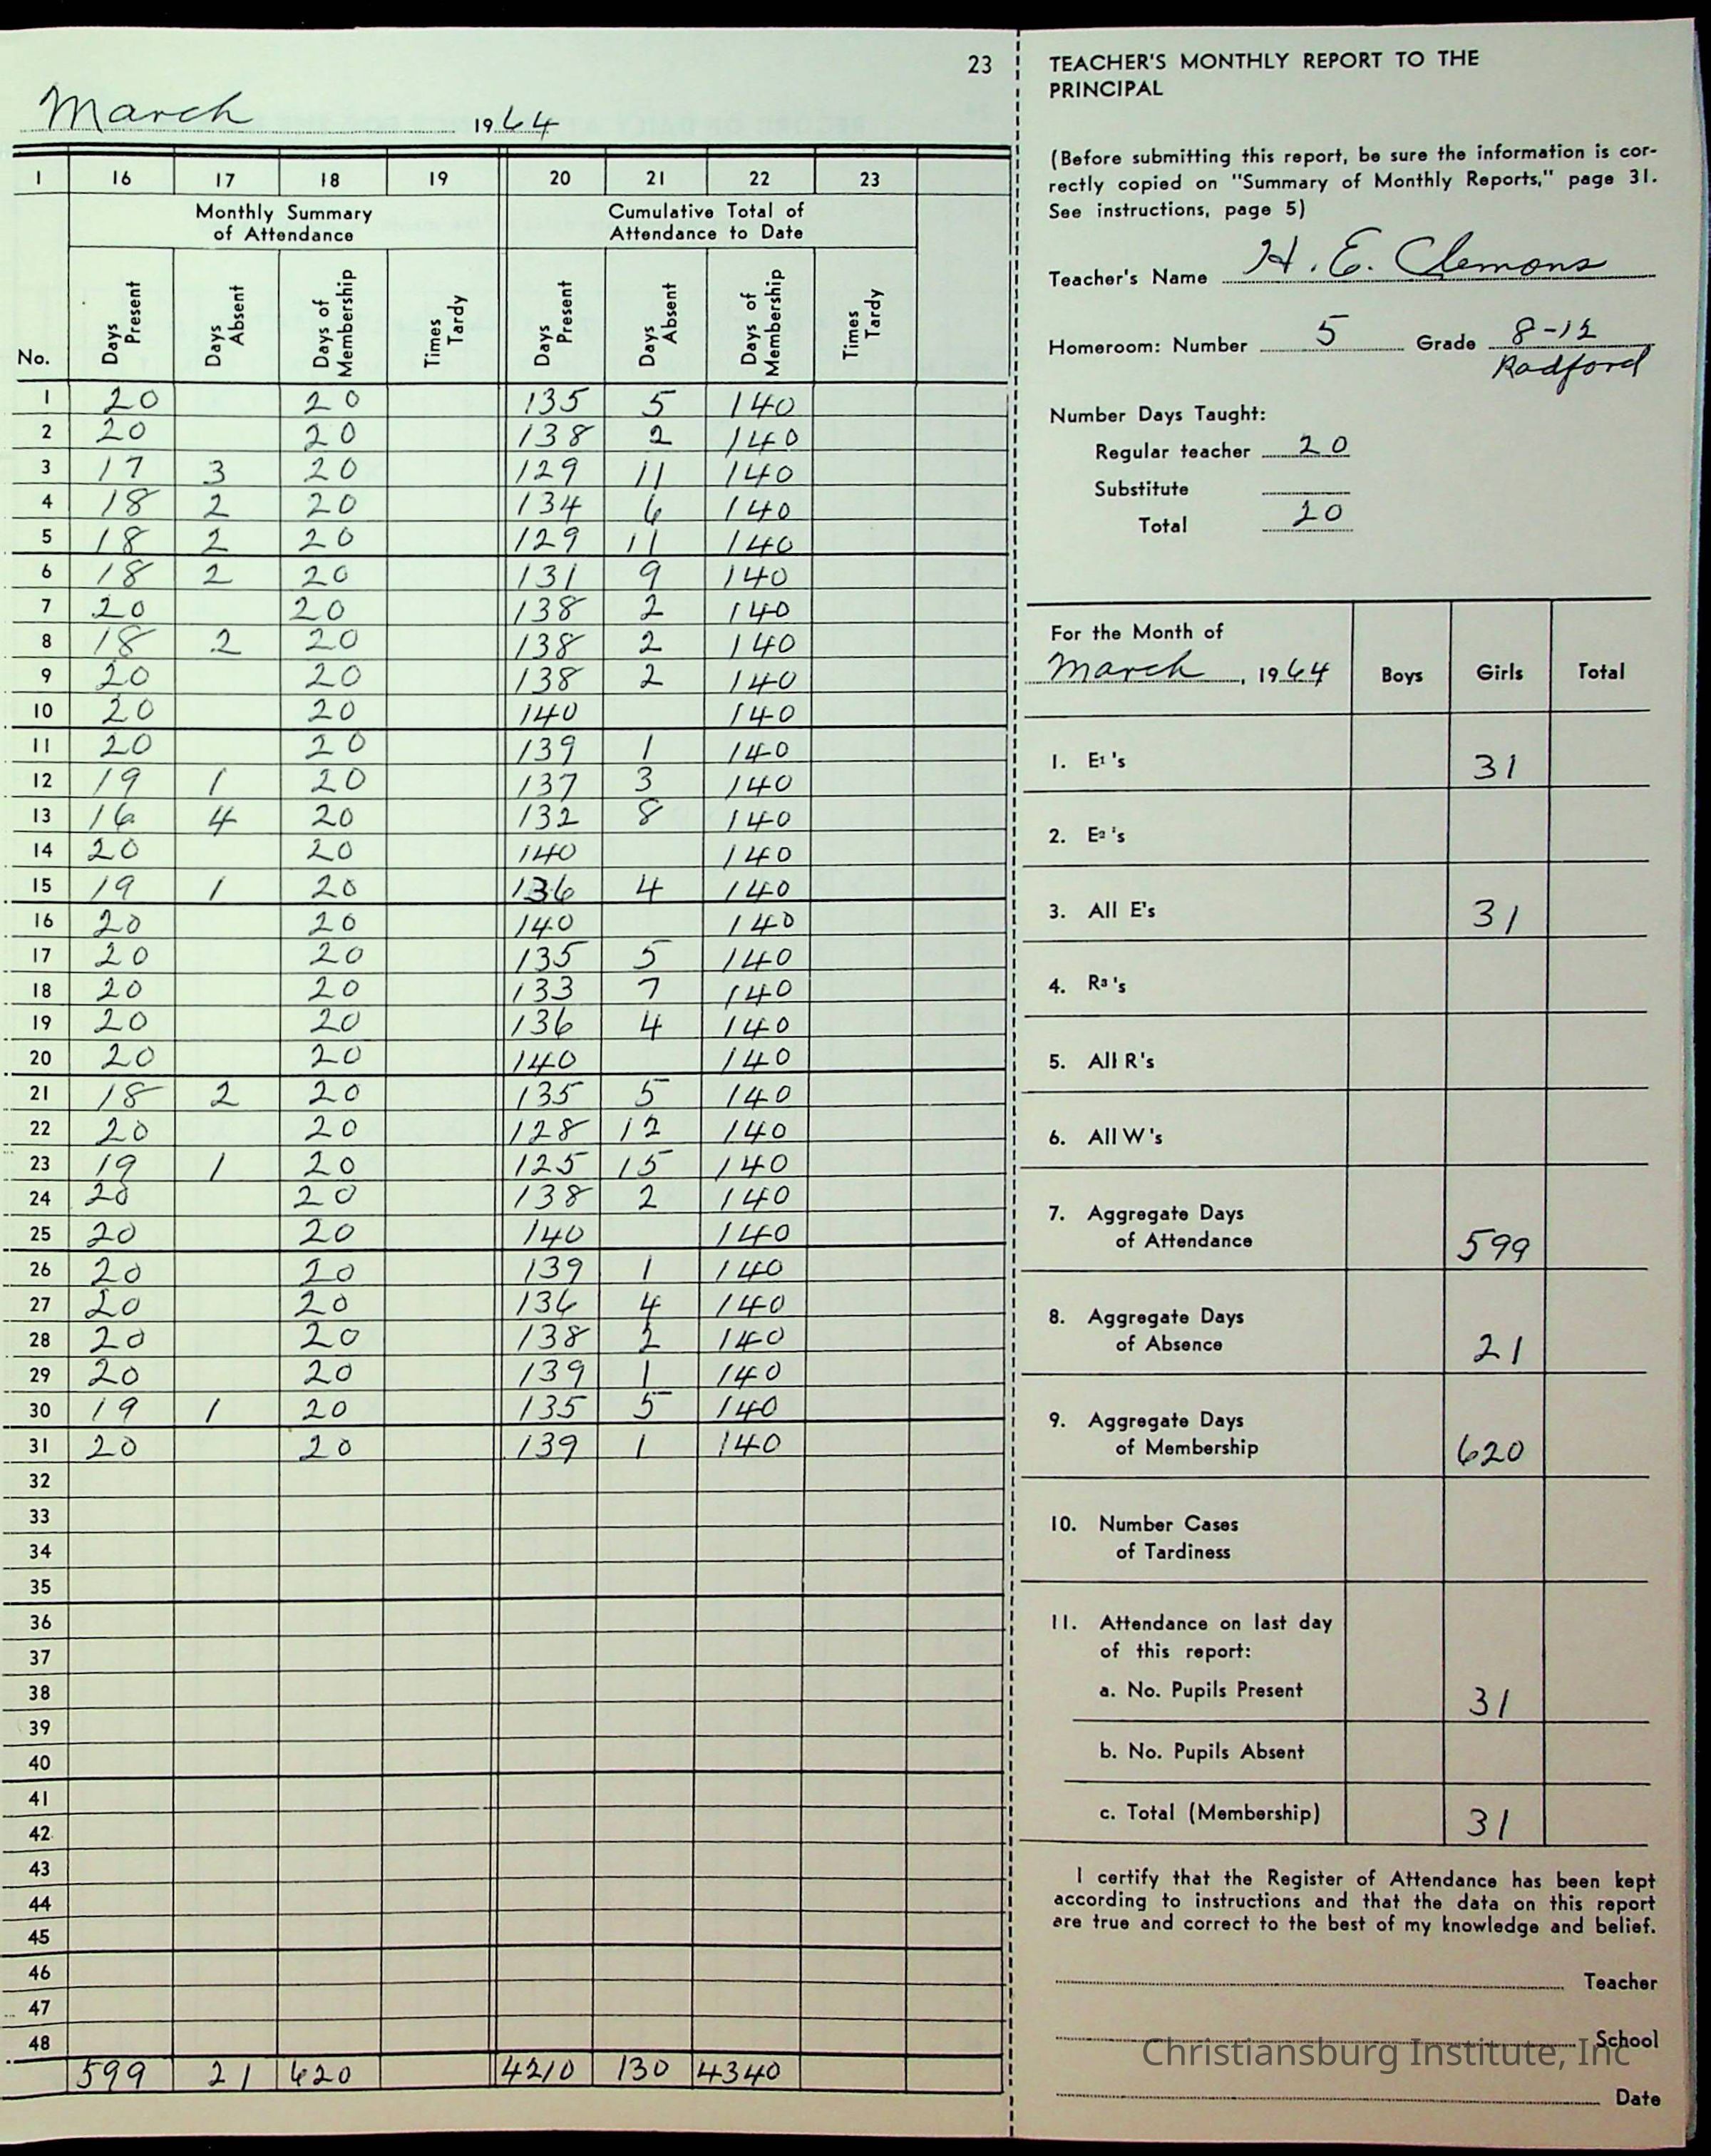 23
March 1964
1 16 17 18 19 20 21 22 23
Monthly Summary of Attendance Cumulative Total of Attendance to Date
No. Days Present Days Absent Days of Membership Times Tardy Days Present Days Absent Days of Membership Times Tardy
1 20 20 135 5 140
2 20 20 138 2 140
3 17 3 20 129 11 140
4 18 2 20 134 6 140
5 18 2 20 129 11 140
6 18 2 20 131 9 140
7 20 20 138 2 140
8 18 2 20 138 2 140
9 20 20 138 2 140
10 20 20 140 140
11 20 20 139 1 140
12 19 1 20 137 3 140
13 16 4 20 132 8 140
14 20 20 140 140
15 19 1 20 136 4 140
16 20 20 140 140
17 20 20 135 5 140
18 20 20 133 7 140
19 20 20 136 4 140
20 20 20 140 140
21 18 2 20 135 5 140
22 20 20 128 12 140
23 19 1 20 125 15 140
24 20 20 138 2 140
25 20 20 140 140
26 20 20 139 1 140
27 20 20 136 4 140
28 20 20 138 2 140
29 20 20 139 1 140
30 19 1 20 135 5 140
31 20 20 139 1 140
32
33
34
35
36
37
38
39
40
41
42
43
44
45
46
47
48
599 21 620 4210 130 4340
TEACHER'S MONTHLY REPORT TO THE
PRINCIPAL
(Before submitting this report, be sure the information is cor-
rectly copied on "Summary of Monthly Reports," page 31.
See instructions, page 5)
Teacher's Name H. E. Clemons
Homeroom: Number 5 Grade 8-12
Radford
Number Days Taught:
Regular teacher 20
Substitute
Total 20
For the Month of
March, 1964 Boys Girls Total
1. E1's 31
2. E2's
3. All E's 31
4. R3's
5. All R's
6. All W's
7. Aggregate Days
of Attendance 599
8. Aggregate Days
of Absence 21
9. Aggregate Days
of Membership 620
10. Number Cases
of Tardiness
11. Attendance on last day
of this report:
a. No. Pupils Present 31
b. No. Pupils Absent
c. Total (Membership) 31
I certify that the Register of Attendance has been kept
according to instructions and that the data on this report
are true and correct to the best of my knowledge and belief.
Teacher
School
Christiansburg Institute, Inc
Date